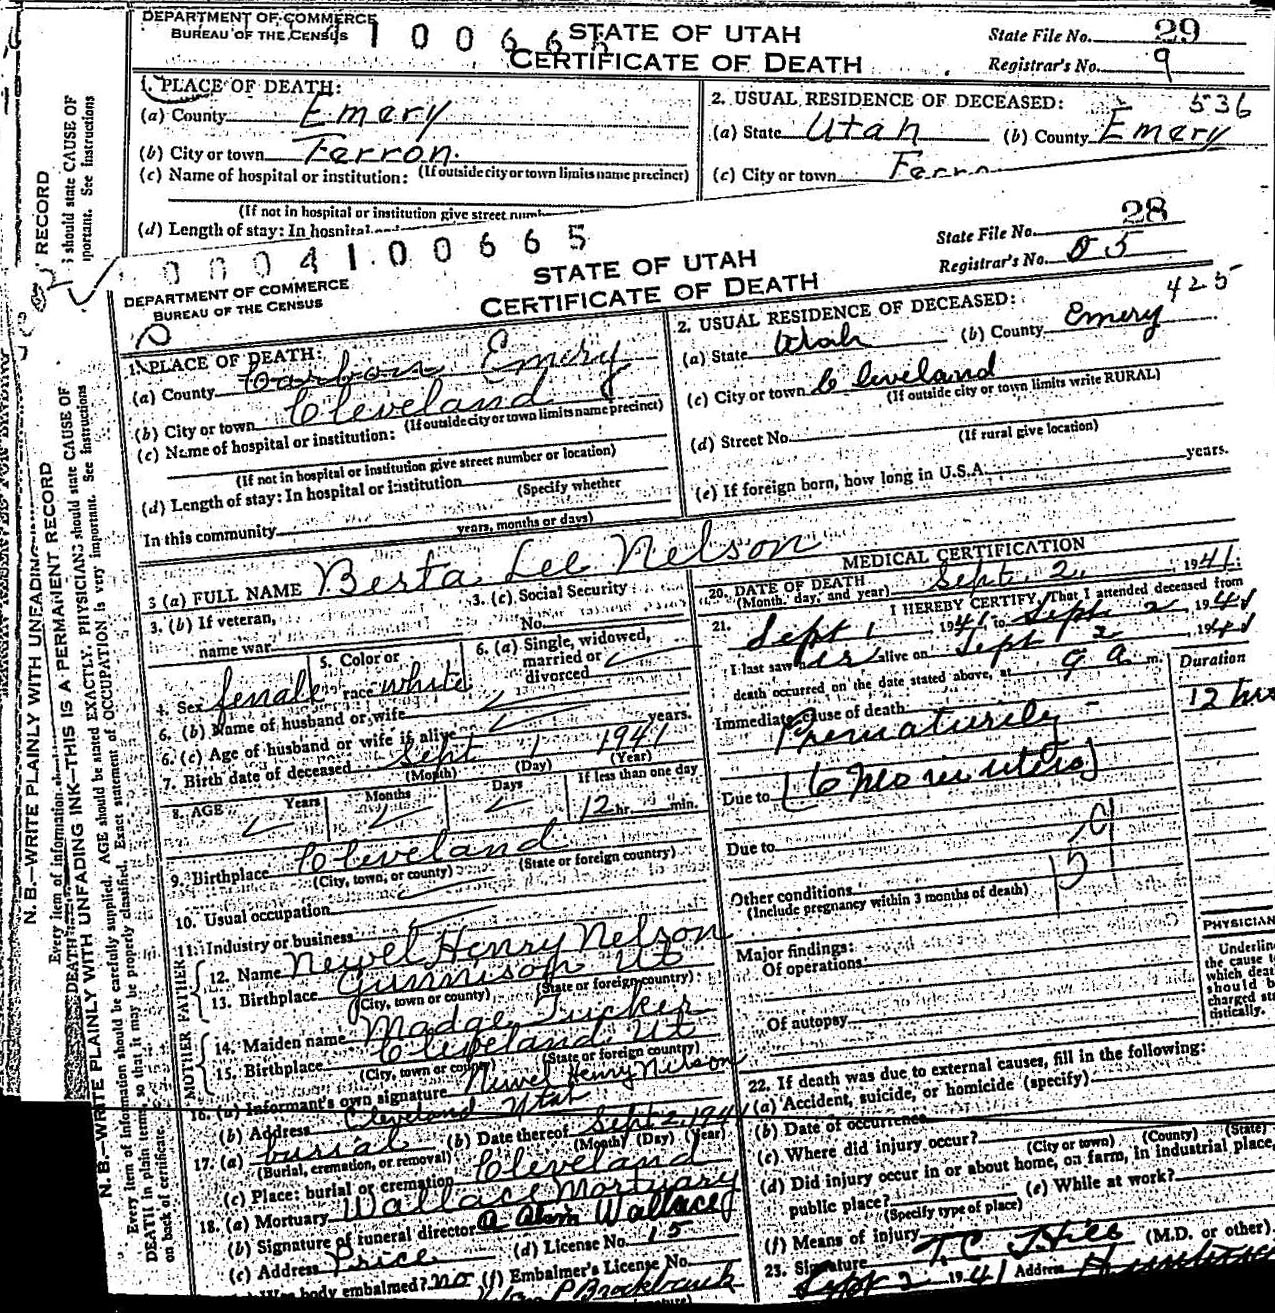 DEPARTMENT OF COMMERCE
BUREAU OF THE CENSUS
1 0 0 6 6
STATE OF UTAH
CERTIFICATE OF DEATH
State File No. 29
Registrar's No. 9
1. PLACE OF DEATH:
(a) County Emery
(b) City or town Ferron.
(c) Name of hospital or institution: (If outside city or town limits name precinct)
(If not in hospital or institution give street
(d) Length of stay: In hospital
2. USUAL RESIDENCE OF DECEASED: 536
(a) State Utah (b) County Emery
(c) City or town
0 0 0 4 1 0 0 6 6 5
DEPARTMENT OF COMMERCE
BUREAU OF THE CENSUS
STATE OF UTAH
CERTIFICATE OF DEATH
State File No. 28
Registrar's No. 05
1. PLACE OF DEATH:
(a) County Carbon Emery
(b) City or town Cleveland
(c) Name of hospital or institution: (If outside city or town limits name precinct)
(If not in hospital or institution give street number or location)
(d) Length of stay: In hospital or institution
(Specify whether
In this community
years, months or days)
2. USUAL RESIDENCE OF DECEASED: 425
(a) State Utah (b) County Emery
(c) City or town Cleveland
(If outside city or town limits write RURAL)
(d) Street No.
(If rural give location)
(e) If foreign born, how long in U.S.A. years.
3 (a) FULL NAME Berta Lee Nelson
3. (b) If veteran,
name war
3. (c) Social Security
No.
4. Sex female
5. Color or
race white
6. (a) Single, widowed,
married or
divorced
6. (b) Name of husband or wife
6. (c) Age of husband or wife if alive years.
7. Birth date of deceased Sept 1 1941
(Month) (Day) (Year)
8. AGE Years Months Days If less than one day
12 hr. min.
9. Birthplace Cleveland
(City, town, or county) (State or foreign country)
10. Usual occupation
11. Industry or business
FATHER
12. Name Newel Henry Nelson
13. Birthplace Gunnison Ut
(City, town or county) (State or foreign country)
MOTHER
14. Maiden name Madge Tucker
15. Birthplace Cleveland Ut
(City, town or county) (State or foreign country)
16. (a) Informant's own signature Newel Henry Nelson
(b) Address Cleveland Utah
17. (a) burial (b) Date thereof Sept 2, 1941
(Burial, cremation, or removal) (Month) (Day) (Year)
(c) Place: burial or cremation Cleveland
18. (a) Mortuary Wallace Mortuary
(b) Signature of funeral director Wallace
(c) Address Price (d) License No. 15
body embalmed? no (f) Embalmer's License No.
MEDICAL CERTIFICATION
20. DATE OF DEATH
(Month, day, and year) Sept. 2, 1941.
21. I HEREBY CERTIFY, That I attended deceased from
Sept 1, 1941 to Sept 2, 1941
I last saw her alive on Sept 2, 1941
death occurred on the date stated above, at 9 a. m.
Duration
Immediate cause of death
Prematurity 12 hrs
Due to (6 mo in utero)
Due to
Other conditions
(Include pregnancy within 3 months of death)
Major findings:
Of operations
Of autopsy
PHYSICIAN
Underline
the cause
which
should
charged
tistically.
22. If death was due to external causes, fill in the following:
(a) Accident, suicide, or homicide (specify)
(b) Date of occurrence
(c) Where did injury occur?
(City or town) (County) (State)
(d) Did injury occur in or about home, on farm, in industrial place,
public place? (e) While at work?
(Specify type of place)
(f) Means of injury
23. Signature T. C. Hill (M.D. or other)
Sept 2 1941 Address
N. B.—WRITE PLAINLY WITH UNFADING INK—THIS IS A PERMANENT RECORD
Every item of information should be carefully supplied. AGE should be stated EXACTLY. PHYSICIANS should state CAUSE OF
DEATH in plain terms, so that it may be properly classified. Exact statement of OCCUPATION is very important. See Instructions
on back of certificate.